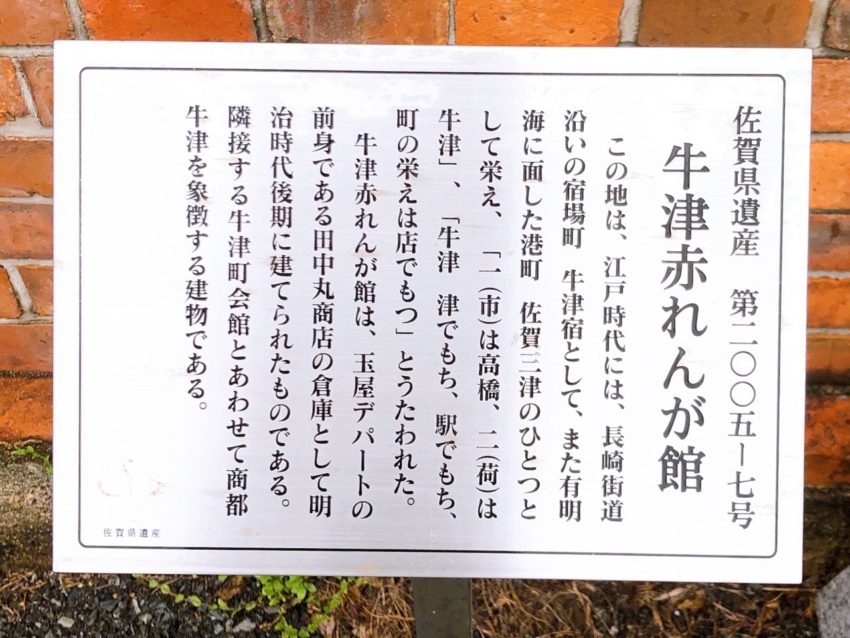 佐賀県遺産　第二〇〇五ー七号
牛津赤れんが館
この地は、江戸時代には、長崎街道
沿いの宿場町　牛津宿として、また有明
海に面した港町　佐賀三津のひとつと
して栄え、「一(市)は高橋、二(荷)は
牛津」、「牛津　津でもち、駅でもち、
町の栄えは店でもつ」とうたわれた。
牛津赤れんが館は、玉屋デパートの
前身である田中丸商店の倉庫として明
治時代後期に建てられたものである。
隣接する牛津町会館とあわせて商都
牛津を象徴する建物である。
佐賀県遺産